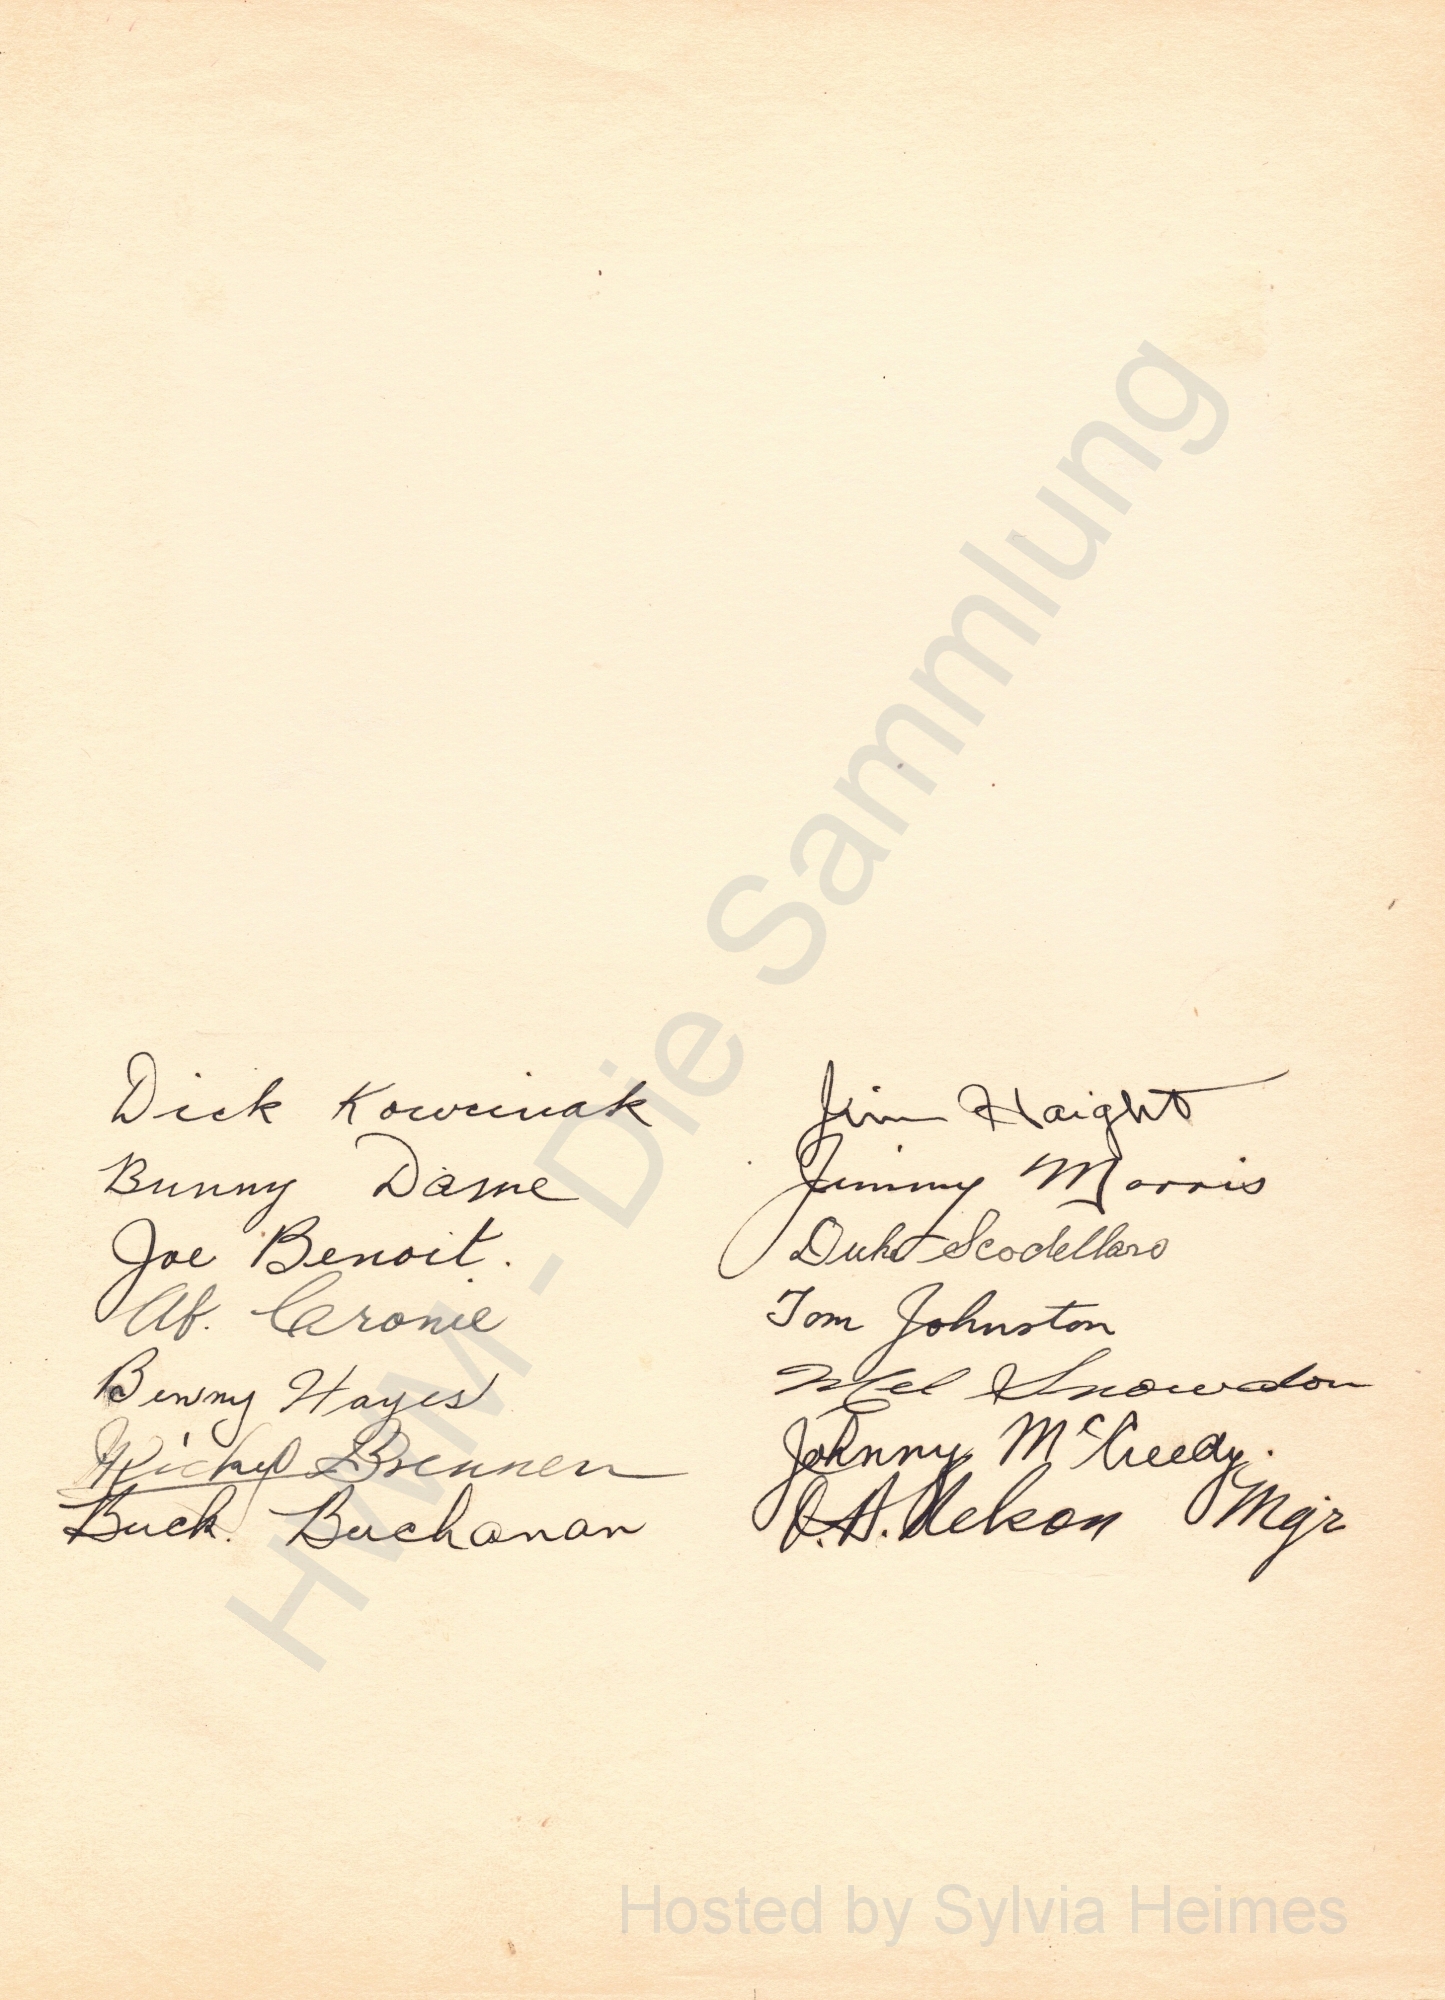 Dick Kowcinak
Bunny Dame
Joe Benoit.
Ab. Cronie
Benny Hayes
Mickey Brennen
Buck. Buchanan
Jim Haight
Jimmy Morris
Duke Scodellaro
Tom Johnston
Mel Snowdon
Johnny McCreedy.
J. A. Nelson Mgr
HWM - Die Sammlung
Hosted by Sylvia Heimes